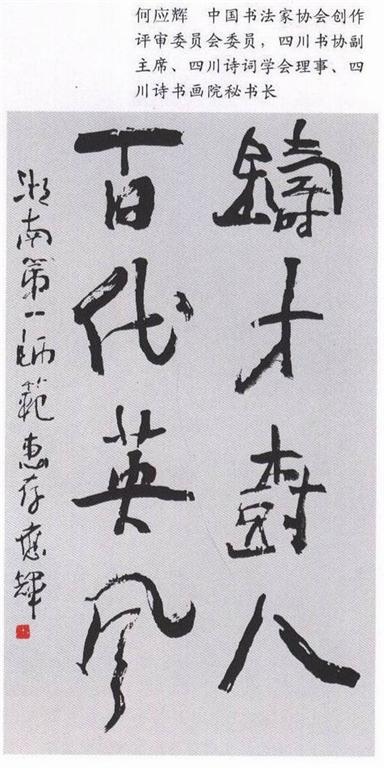 何应辉　中国书法家协会创作
评审委员会委员，四川书协副
主席、四川诗词学会理事、四
川诗书画院秘书长
鑄才樹人
百代英风
湖南第一師範惠存應輝